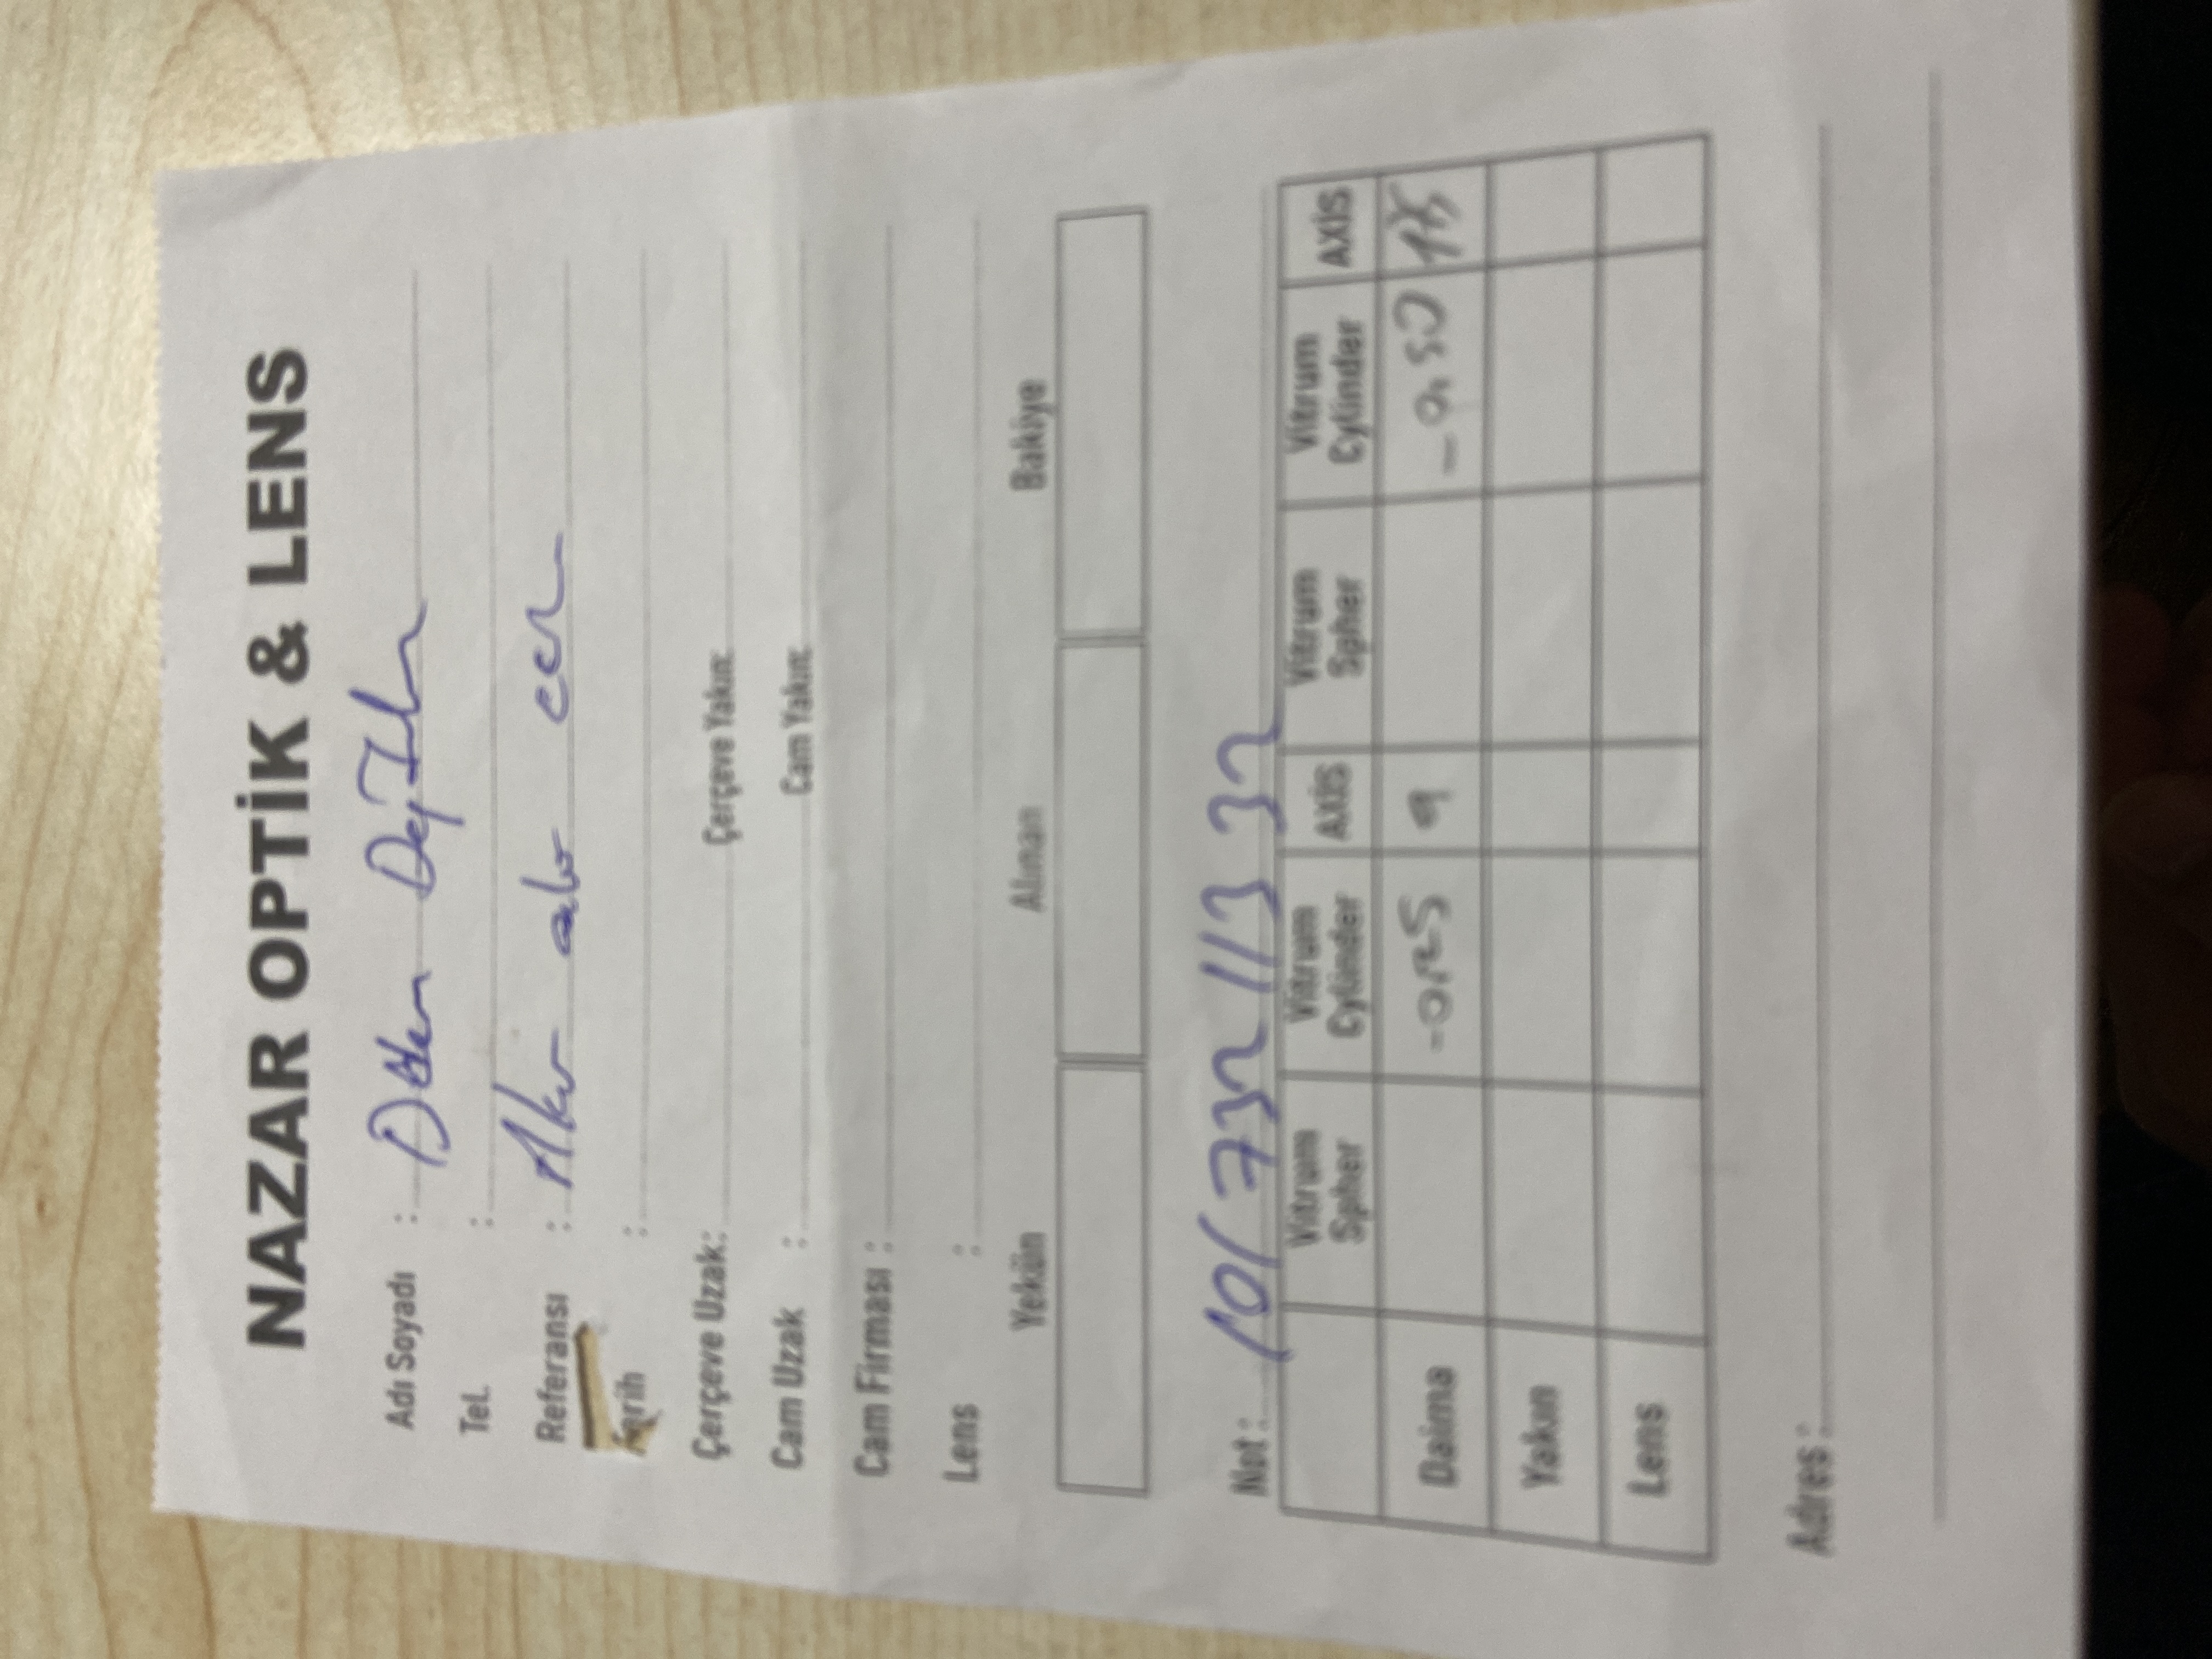 NAZAR OPTİK & LENS
Adı Soyadı :
Tel. :
Referansı :
Tarih :
Çerçeve Uzak: Çerçeve Yakın:
Cam Uzak : Cam Yakın:
Cam Firması :
Lens :
Yekün Alınan Bakiye
Not : 101 732 113 32
Vitrum Spher Vitrum Cylinder AXİS Vitrum Spher Vitrum Cylinder AXİS
Daima -0,25 9 -0,50
Yakın
Lens
Adres :